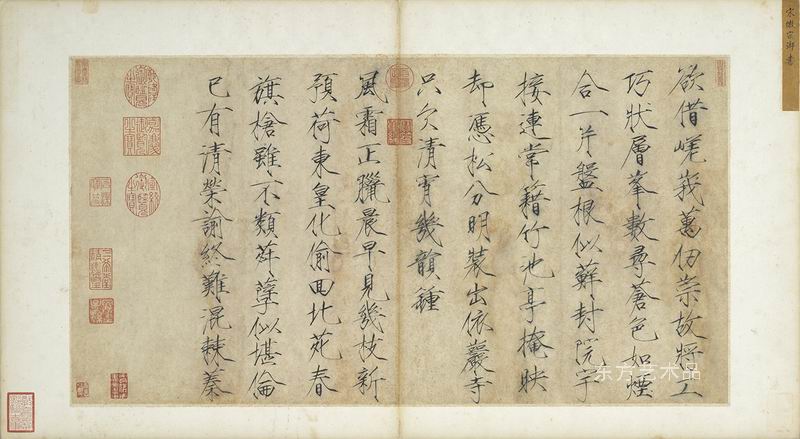 宋徽宗御書
欲借嵯峩萬仞崇故將工
巧狀層峯數尋蒼色如煙
合一片盤根似蘚封院宇
接連常籍竹池亭掩映
却憑松分明裝出依巖寺
只欠清宵幾韻鍾
風霜正臘晨早見幾枝新
預荷東皇化偷回北苑春
旗槍雖不類荈孽似堪倫
已有清榮諭終難混棘蓁
东方艺术品